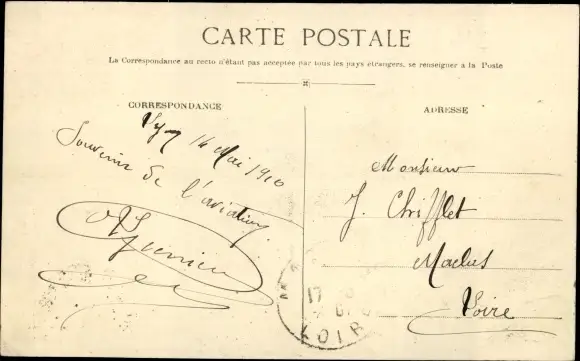 CARTE POSTALE
La Correspondance au recto n'étant pas acceptée par tous les pays étrangers, se renseigner à la Poste
CORRESPONDANCE
ADRESSE
Lyon 14 Mai 1910
Souvenir de l'aviation
Monsieur
J. Chifflet
Maclas
Loire
LOIR